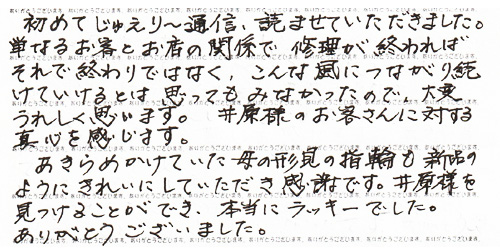 初めてじゅえり～通信、読ませていただきました。
単なるお客とお店の関係で、修理が終われば
それで終わりではなく、こんな風につながり続
けていけるとは思ってもみなかったので、大変
うれしく思います。井原様のお客さんに対する
真心を感じます。
あきらめかけていた母の形見の指輪も新品の
ようにきれいにしていただき感謝です。井原様を
見つけることができ、本当にラッキーでした。
ありがとうございました。